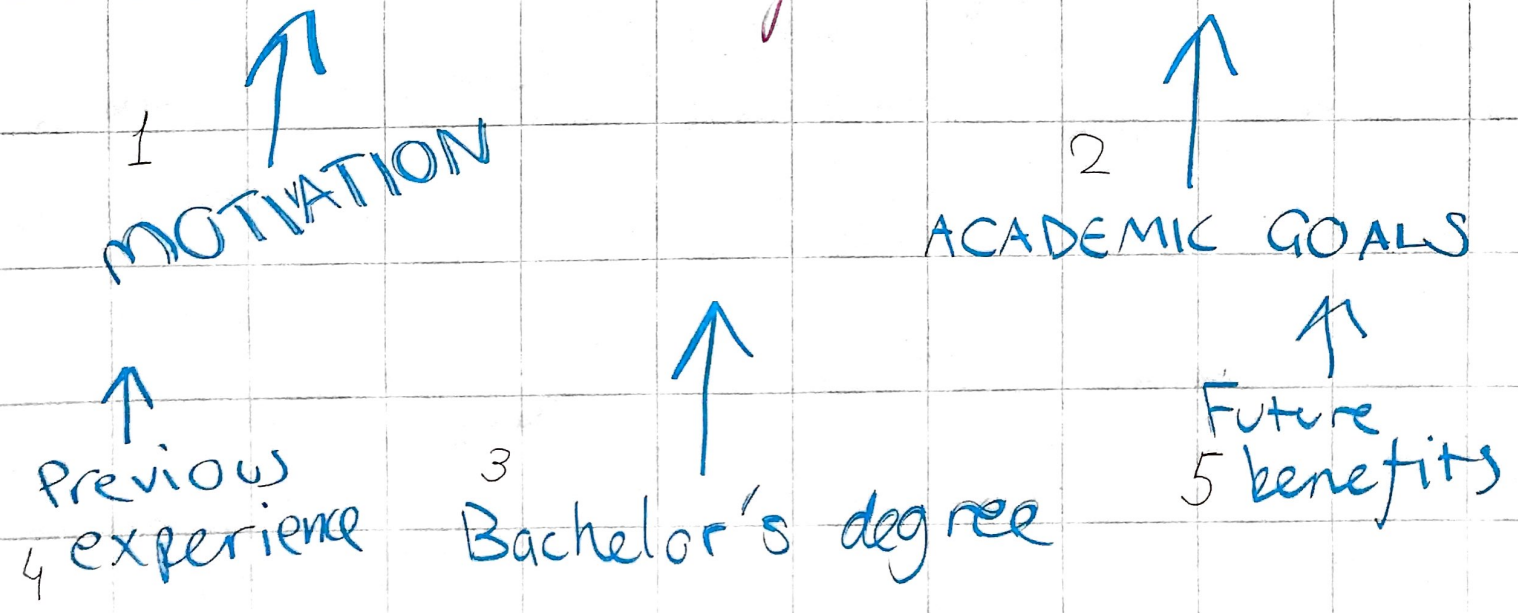 1
MOTIVATION
2
ACADEMIC GOALS
Previous
4 experience
3
Bachelor's degree
Future
5 benefits